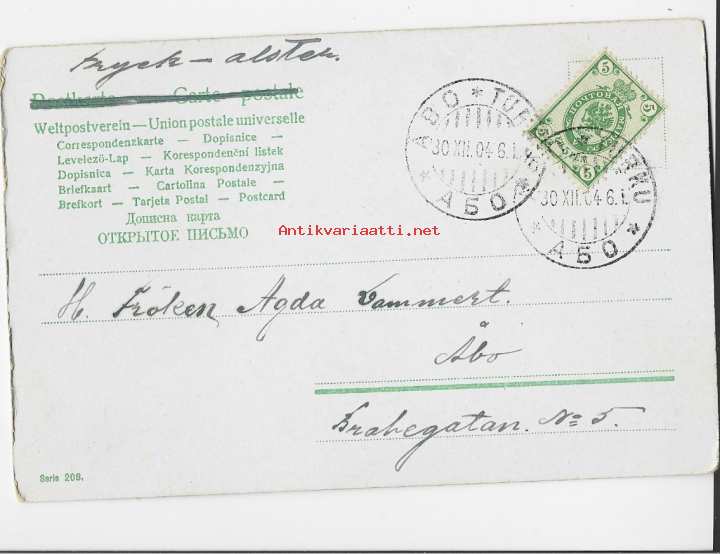 Tryck-alster.
Postkarte — Carte postale
Weltpostverein — Union postale universelle
Correspondenzkarte – Dopisnice –
Levelező-Lap – Korespondenční listek
Dopisnica – Karta Korespondenzyjna
Briefkaart – Cartolina Postale –
Brefkort – Tarjeta Postal – Postcard
Дописна карта
ОТКРЫТОЕ ПИСЬМО
ÅBO * TUR
30 XII.04 6.I.
* АБО *
5 5
ПОЧТОВАЯ МАРКА
5
RKU
30 XII.04 6.I.
* АБО *
Antikvariaatti.net
H. Fröken Agda Vammert.
Åbo
Brahegatan. No 5.
Serie 208.